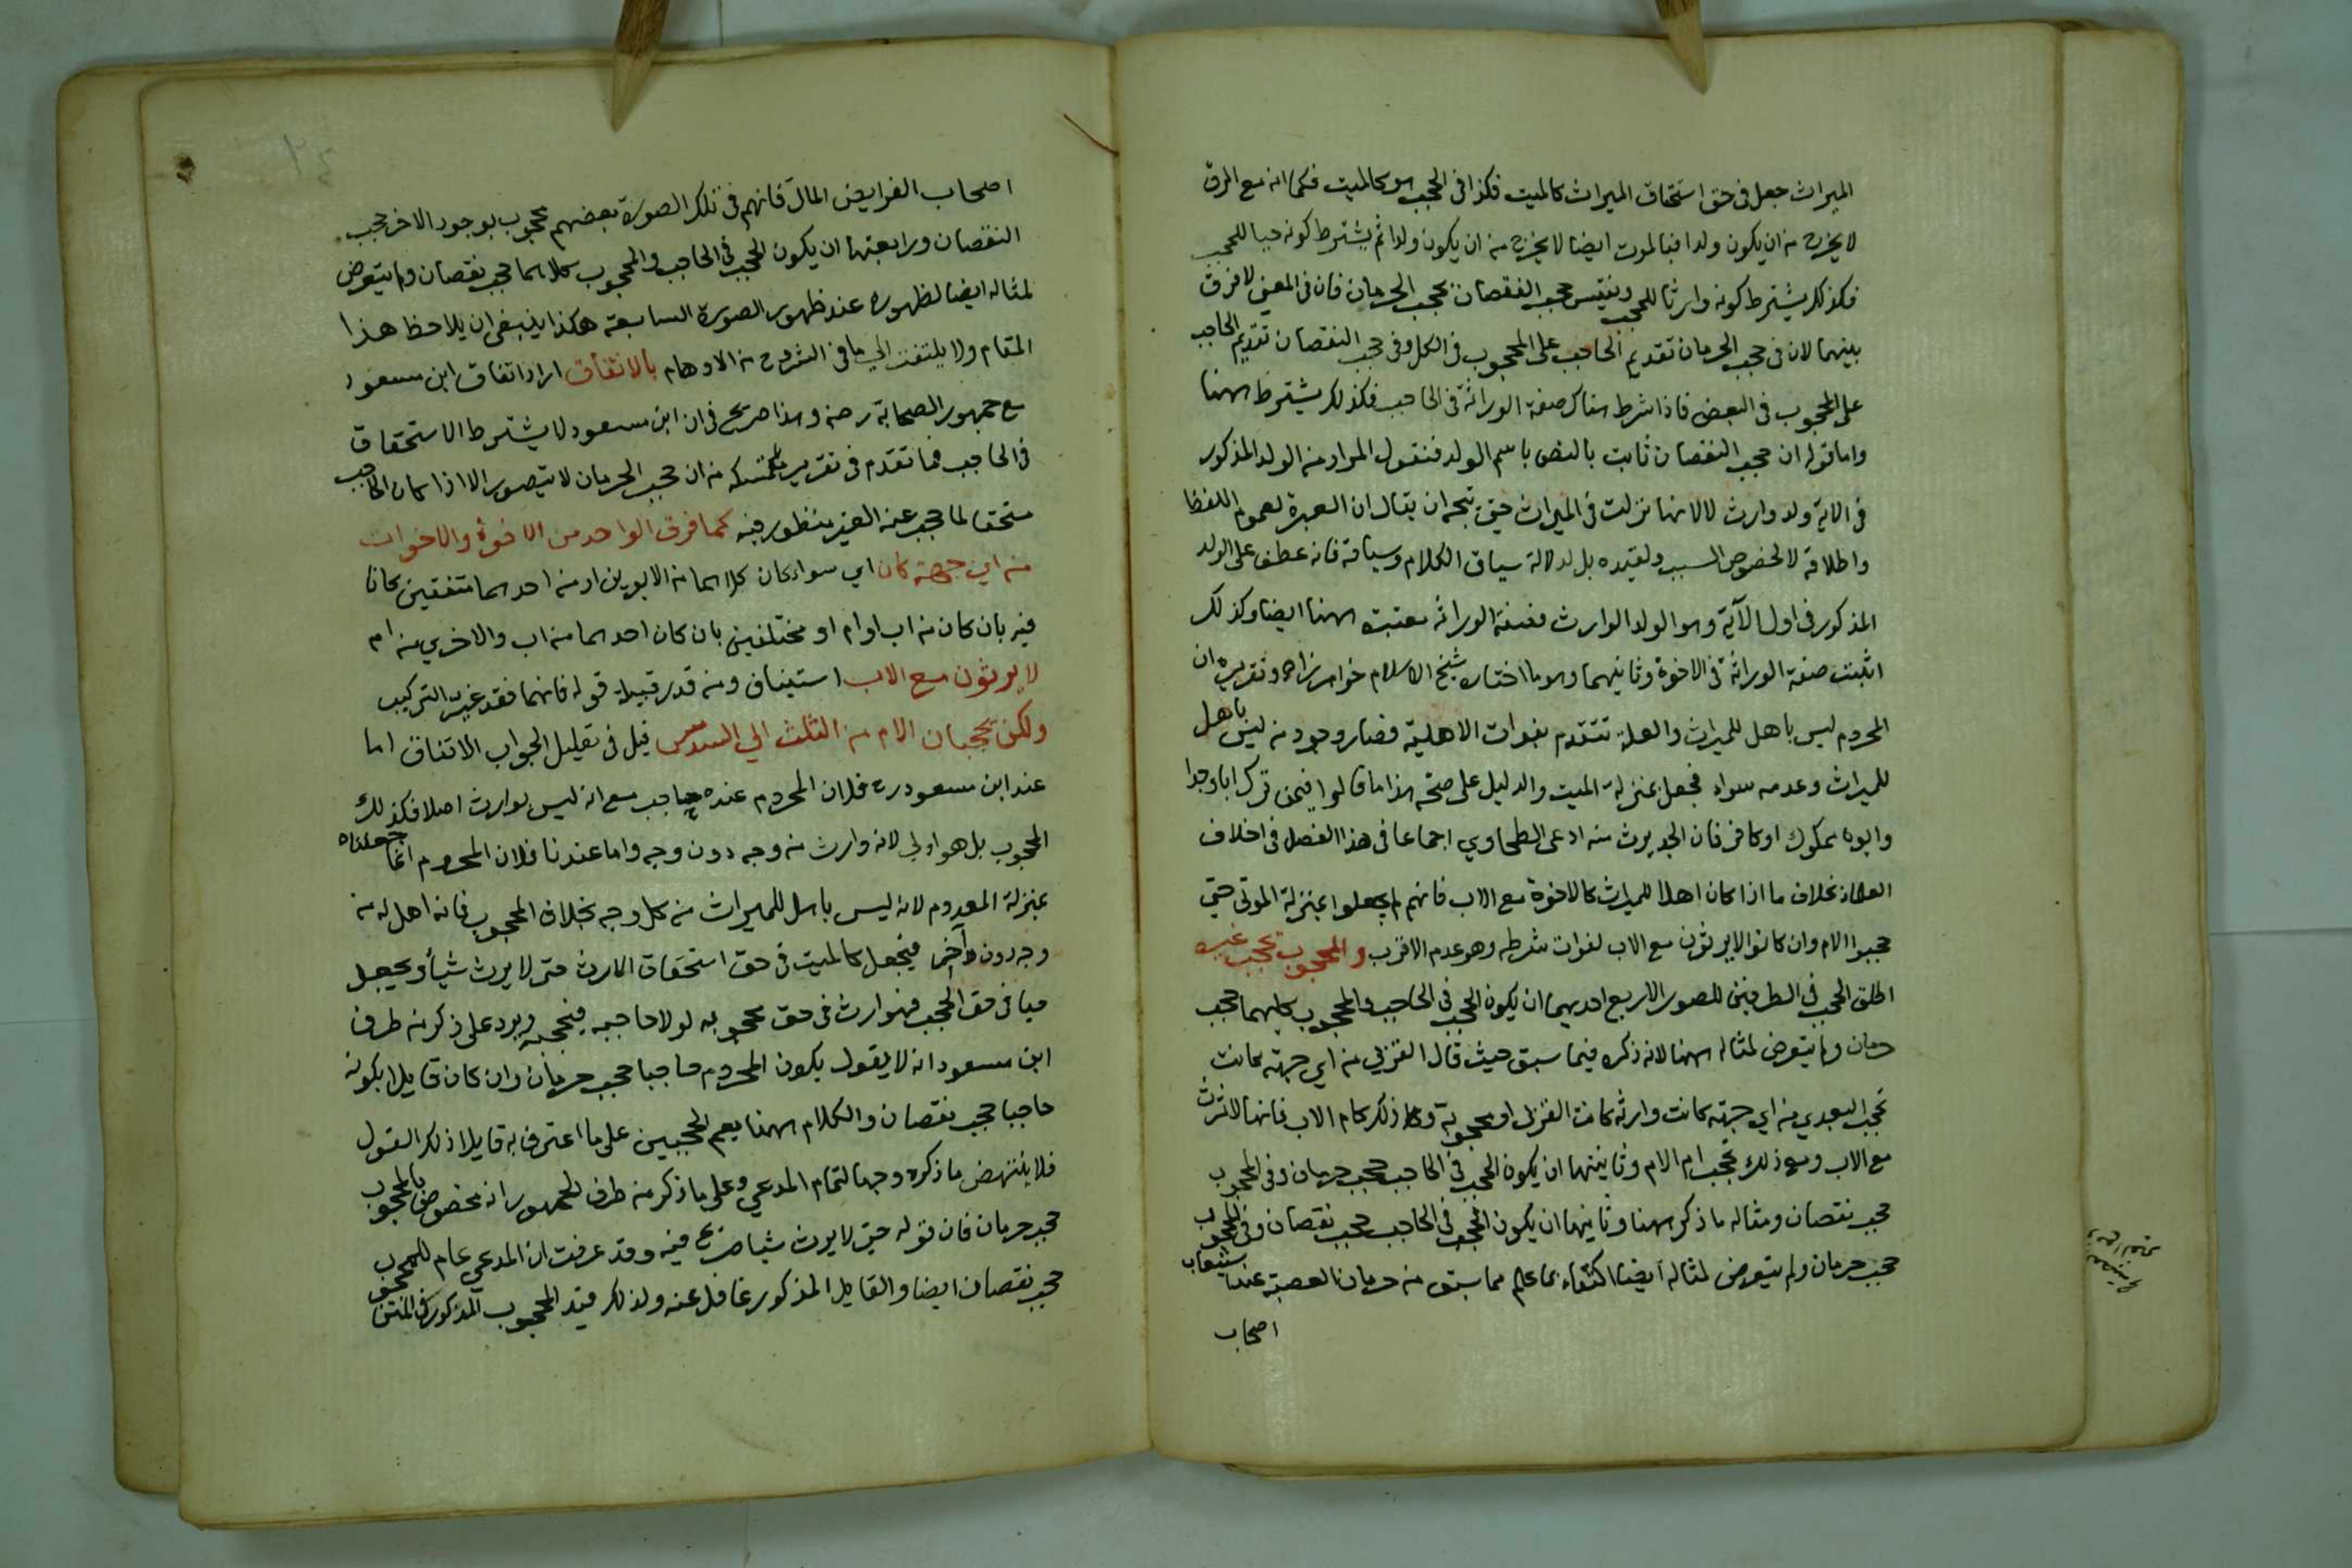 الميراث جعل فى حق استحقاق الميراث كالميت فكذا فى الحجب هو كالميت فكما انه مع الرق
لا يخرج من ان يكون ولدا فبالموت ايضا لا يخرج من ان يكون ولدا ثم يشترط كونه حيا للحجب
فكذلك يشترط كونه وارثا للحجب ونقيس حجب النقصان بحجب الحرمان فان فى المعنى لا فرق
بينهما لان فى حجب الحرمان تقديم الحاجب على المحجوب فى الكل وفى حجب النقصان تقديم الحاجب
على المحجوب فى البعض فاذا شرط هناك صفة الوراثة فى الحاجب فكذلك يشترط ههنا
واما قوله ان حجب النقصان ثابت بالنص باسم الولد فنقول المراد من الولد المذكور
فى الاية ولد وارث لا لانها نزلت فى الميراث حتى يتجه ان يقال ان العبرة لعموم اللفظ
واطلاقه لا لخصوص السبب وتقييده بل لدلالة سياق الكلام وسباقه فانه عطف على الولد
المذكور فى اول الآية وهو الولد الوارث فصفة الوراثه معتبرة ههنا ايضا وكذلك
اثبتت صفة الوراثة فى الاخوة وثانيهما وهو ما اختاره شيخ الاسلام خواهر زاده وتقريره ان
المحروم ليس باهل للميراث والعلة تنعدم بفوات الاهلية فصار وجود من ليس باهل
للميراث وعدمه سواء فجعل بمنزلة الميت والدليل على صحة هذا ما قالوا فيمن ترك ابا وجدا
وابوه مملوك او كافر فان الجد يرث منه ادعى الطحاوي اجماعا فى هذا الفصل فى اختلاف
العلماء بخلاف ما اذا كان اهلا للميراث كالاخوة مع الاب فانهم لم يجعلوا بمنزلة الموتى حتى
حجبوا الام وان كانوا لا يرثون مع الاب لفوات شرطه وهو عدم الاقرب والمحجوب يحجب غيره
اطلق الحجب فى الطرفين للصور الاربع احديهما ان يكون الحجب فى الحاجب والمحجوب كليهما حجب
حرمان ولم يتعرض لمثاله ههنا لانه ذكره فيما سبق حيث قال القربى من اي جهة كانت
تحجب البعدي من اي جهة كانت وارثة كانت القربى او محجوبة وكذا ذلك كام الاب فانها لا ترث
مع الاب ومع ذلك تحجب ام الام وثانيتهما ان يكون الحجب فى الحاجب حجب حرمان وفى المحجوب
حجب نقصان ومثاله ما ذكر ههنا وثانيهما ان يكون الحجب فى الحاجب حجب نقصان وفى المحجوب
حجب حرمان ولم يتعرض لمثاله ايضا اكتفاء بما علم مما سبق من حرمان العصبة عند استيعاب
اصحاب
اصحاب الفرايض المال فانهم فى تلك الصورة بعضهم محجوب بوجود الاخر حجب
النقصان ورابعتها ان يكون الحجب فى الحاجب والمحجوب كلاهما حجب نقصان ولم يتعرض
لمثاله ايضا لظهوره عند ظهور الصورة السابعة هكذا ينبغى ان يلاحظ هذا
المقام ولا يلتفت الى ما فى الشروح من الاوهام بالاتفاق اراد اتفاق ابن مسعود
مع جمهور الصحابة رضه وهذا صريح فى ان ابن مسعود لا يشترط الاستحقاق
فى الحاجب فما تقدم فى تقرير تمسكه من ان حجب الحرمان لا يتصور الا اذا كان الحاجب
مستحقا لما حجب عنه الغير منظور فيه كما فوق الواحد من الاخوة والاخوات
من اي جهة كان اي سواء كان كلاهما من الابوين او من احدهما متفقين كانا
فيه بان كان من اب او ام او مختلفين بان كان احدهما من اب والاخري من ام
لا يرثون مع الاب استيناف ومن قدر قبيله قوله فانهما فقد غير التركيب
ولكن يحجبان الام من الثلث الى السدس قيل فى تعليل الجواب الاتفاق اما
عند ابن مسعود رح فلان المحروم عنده حاجب مع انه ليس بوارث اصلا فكذلك
المحجوب بل هو اولى لانه وارث من وجه دون وجه واما عندنا فلان المحروم انما جعلناه
بمنزلة المعدوم لانه ليس باهل للميراث من كل وجه بخلاف المحجوب فانه اهل له من
وجه دون آخر فيجعل كالميت فى حق استحقاق الارث حتى لا يرث شيأ ويجعل
حيا فى حق الحجب فهو وارث فى حق محجوبه لولا حاجبه فيحجبه ويرد على ذكر من طرف
ابن مسعود انه لا يقول يكون المحروم حاجبا حجب حرمان وان كان قايلا بكونه
حاجبا حجب نقصان والكلام ههنا يعم الحجبين على ما اعترف به قايلا ذلك القول
فلا ينتهض ما ذكره وجها لتمام المدعي وعلى ما ذكر من طرف الجمهور انه مخصوص بالمحجوب
حجب حرمان فان قوله حتى لا يرث شيأ صريح فيه وقد عرفت ان المدعي عام للمحجوب
حجب نقصان ايضا والقايل المذكور غافل عنه ولذلك قيد المحجوب المذكور فى المتن